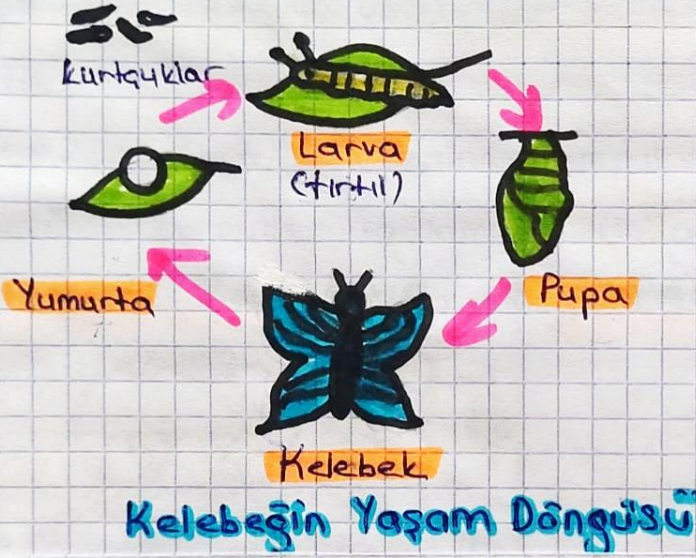 Kurtçuklar
Larva
(tırtıl)
Yumurta
Pupa
Kelebek
Kelebeğin Yaşam Döngüsü